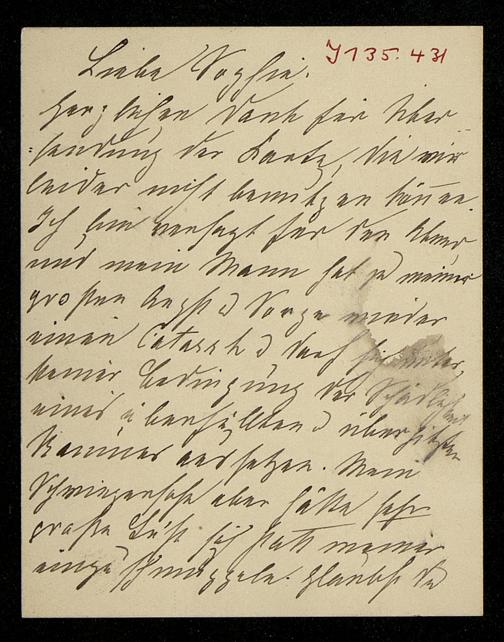 J 135.431
Liebe Sophie.
Herzlichen Dank für Über
=sendung der Karte, die wir
leider nicht benutzen können.
Ich bin versagt für den Abend
und mein Mann hat zu meiner
großen Angst u Sorge wieder
einen Catarrh u darf sich unter
keiner Bedingung der
eines überfüllten u überhitzten
Raumes aussetzen. Mein
Schwiegersohn aber hätte sehr
große Lust sich statt meiner
einzuschmuggeln. Glaubst Du